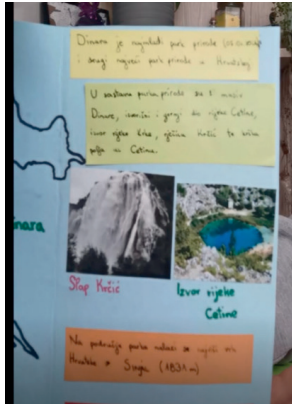 Dinara je najmlađi park prirode
i drugi najveći park prirode u Hrvatskoj
U sastavu parka prirode su i masiv
Dinare, izvorišni i gornji dio rijeke Cetine,
izvor rijeke Krke, rječica Krčić te krška
polja uz Cetinu.
inara
Slap Krčić
Izvor rijeke
Cetine
Na području parka nalazi se najviši vrh
Hrvatske - Sinjal (1831 m)